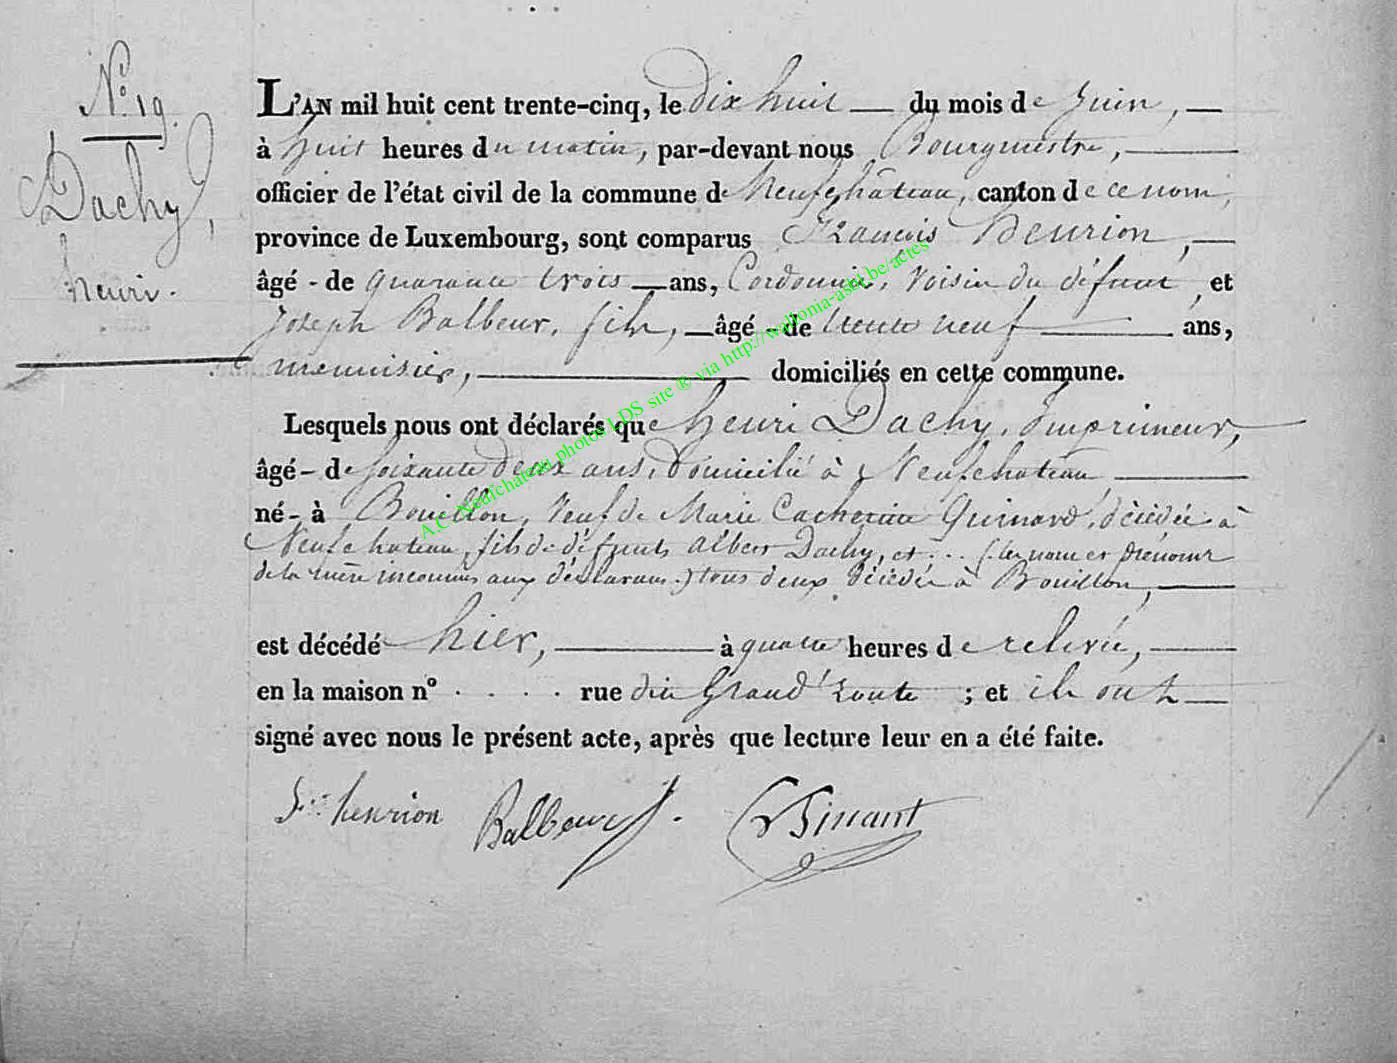 N.° 19.
Dachy,
henri.
L'AN mil huit cent trente-cinq, le dix huit — du mois de Juin, —
à huit heures du matin, par-devant nous Bourgmestre, —
officier de l'état civil de la commune de Neufchâteau, canton de ce nom,
province de Luxembourg, sont comparus François Henrion, —
âgé - de quarante trois — ans, Cordonnier, Voisin du défunt, et
Joseph Balbeur, fils, — âgé - de trente neuf — ans,
menuisier, — domiciliés en cette commune.
Lesquels nous ont déclarés que henri Dachy, Imprimeur,
âgé - de soixante deux ans, Domicilié à Neufchateau —
né - à Bouillon, Veuf de Marie Catherine Guinard, décédée à
Neufchateau, fils de défunts Albert Dachy, et ... (les nom et prénoms
de la mère inconnus aux déclarans.) tous deux décédés à Bouillon, —
est décédé hier, — à quatre heures de relevée, —
en la maison n° . . . . rue dite Grand'Route ; et ils ont —
signé avec nous le présent acte, après que lecture leur en a été faite.
henrion Balbeur f.
A.C. Neufchateau photos LDS site ® via http://wallonia-asbl.be/actes